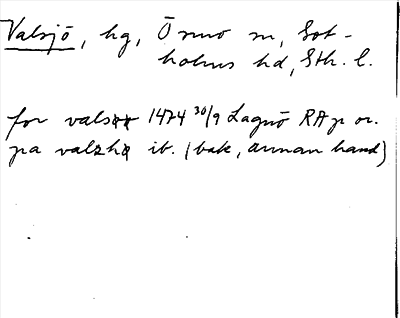 Valsjö, hg, Ornö sn, Sot-
holms hd, Sth. l.
for vals 1474 30/9 Lagnö RAp or.
pa ib. (bak, annan hand)